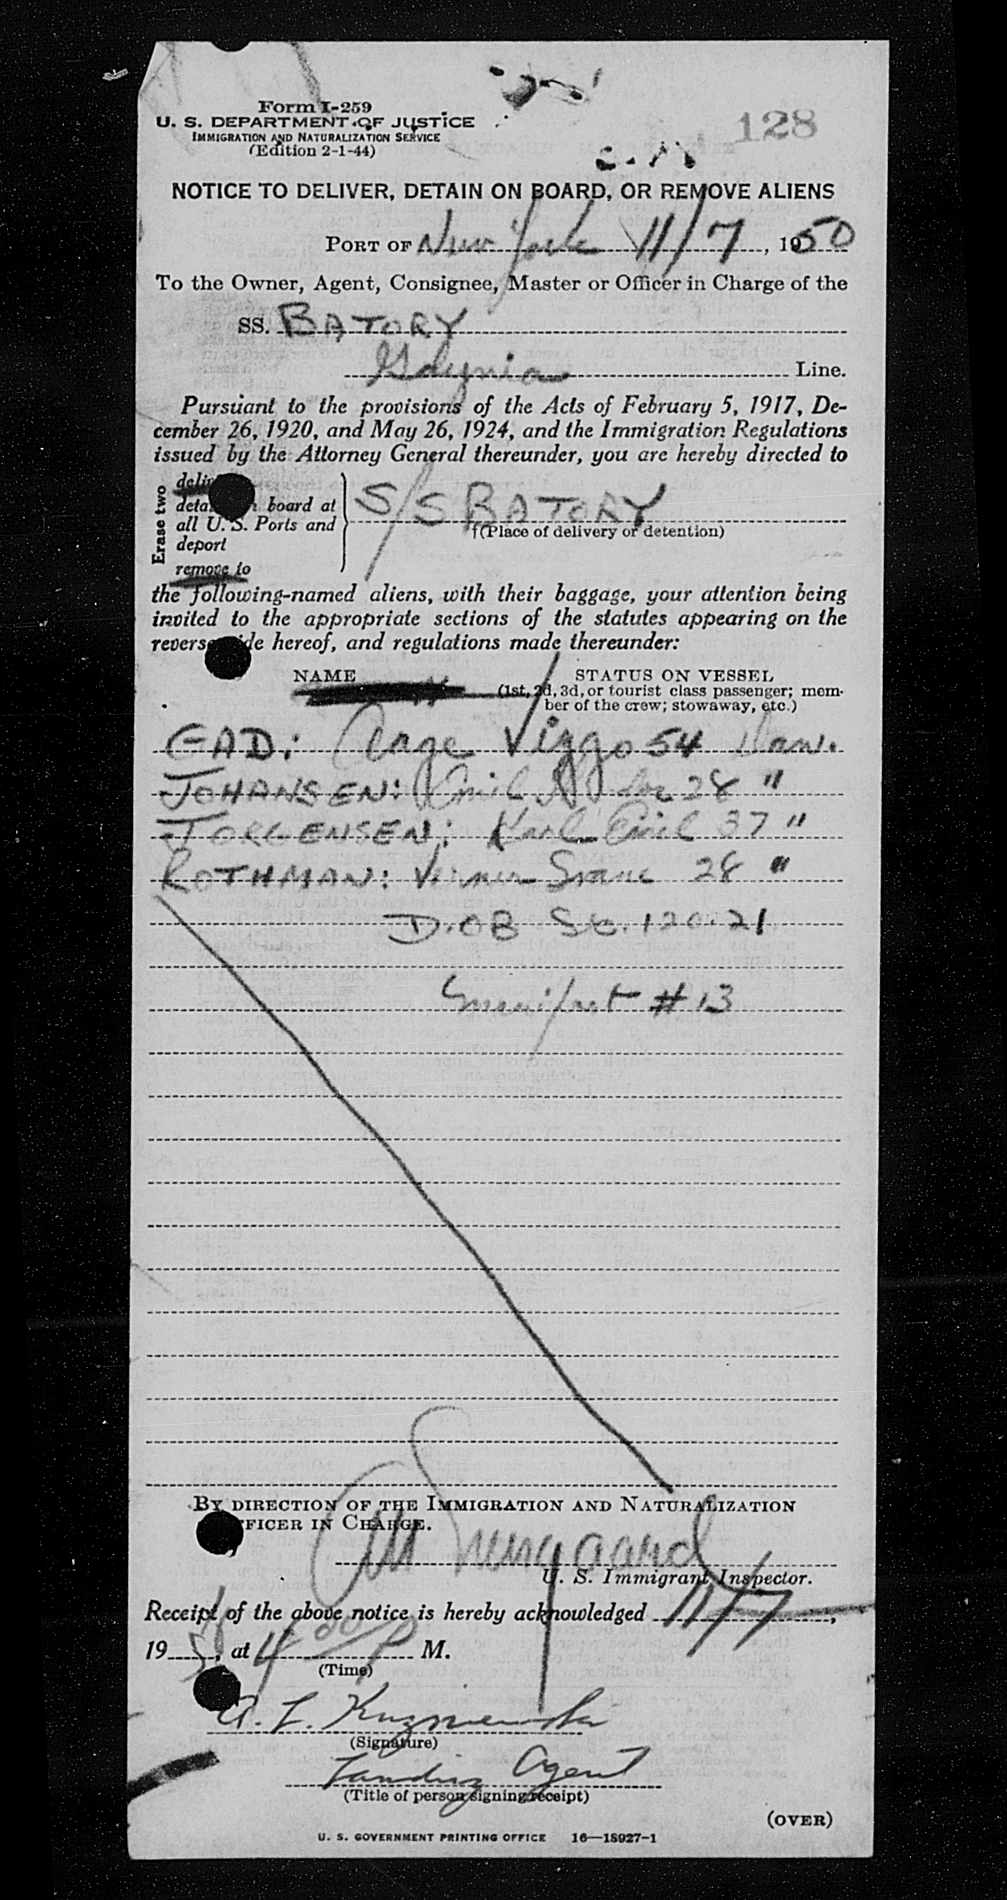 Form I-259
U. S. DEPARTMENT OF JUSTICE
IMMIGRATION AND NATURALIZATION SERVICE
(Edition 2-1-44)
128
NOTICE TO DELIVER, DETAIN ON BOARD, OR REMOVE ALIENS
PORT OF New York 11/7, 1950
To the Owner, Agent, Consignee, Master or Officer in Charge of the
SS. BATORY
Gdynia Line.
Pursuant to the provisions of the Acts of February 5, 1917, De-
cember 26, 1920, and May 26, 1924, and the Immigration Regulations
issued by the Attorney General thereunder, you are hereby directed to
Erase two
board at
all U. S. Ports and
deport
remove to
S/S BATORY
†(Place of delivery or detention)
the following-named aliens, with their baggage, your attention being
invited to the appropriate sections of the statutes appearing on the
hereof, and regulations made thereunder:
NAME STATUS ON VESSEL
(1st, 2d, 3d, or tourist class passenger; mem-
ber of the crew; stowaway, etc.)
GAD: Aage Viggo 54 Dan.
JOHANSEN: 28 "
JORGENSEN: Karl Emil 37 "
ROTHMAN: 28 "
D.OB
Manifest # 13
BY DIRECTION OF THE IMMIGRATION AND NATURALIZATION
OFFICER IN CHARGE.
U. S. Immigrant Inspector.
Receipt of the above notice is hereby acknowledged 11/7,
1950, at 4 00 P M.
(Time)
(Signature)
Landing Agent
(Title of person signing receipt)
(OVER)
U. S. GOVERNMENT PRINTING OFFICE 16—18927-1